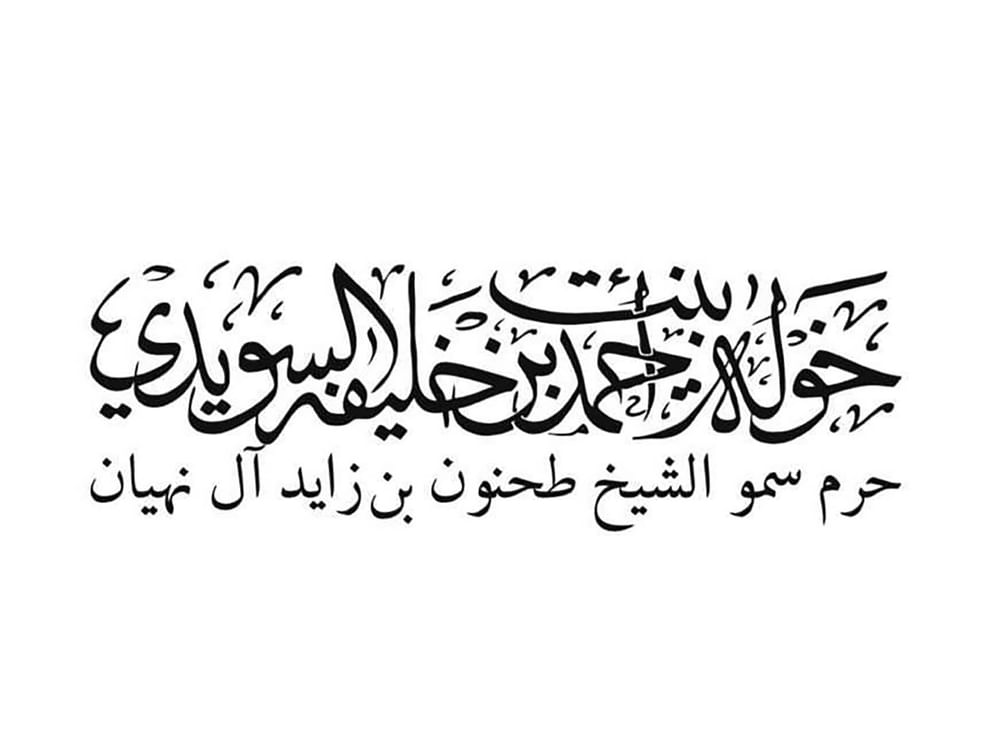 خولة بنت أحمد بن خليفة السويدي
حرم سمو الشيخ طحنون بن زايد آل نهيان